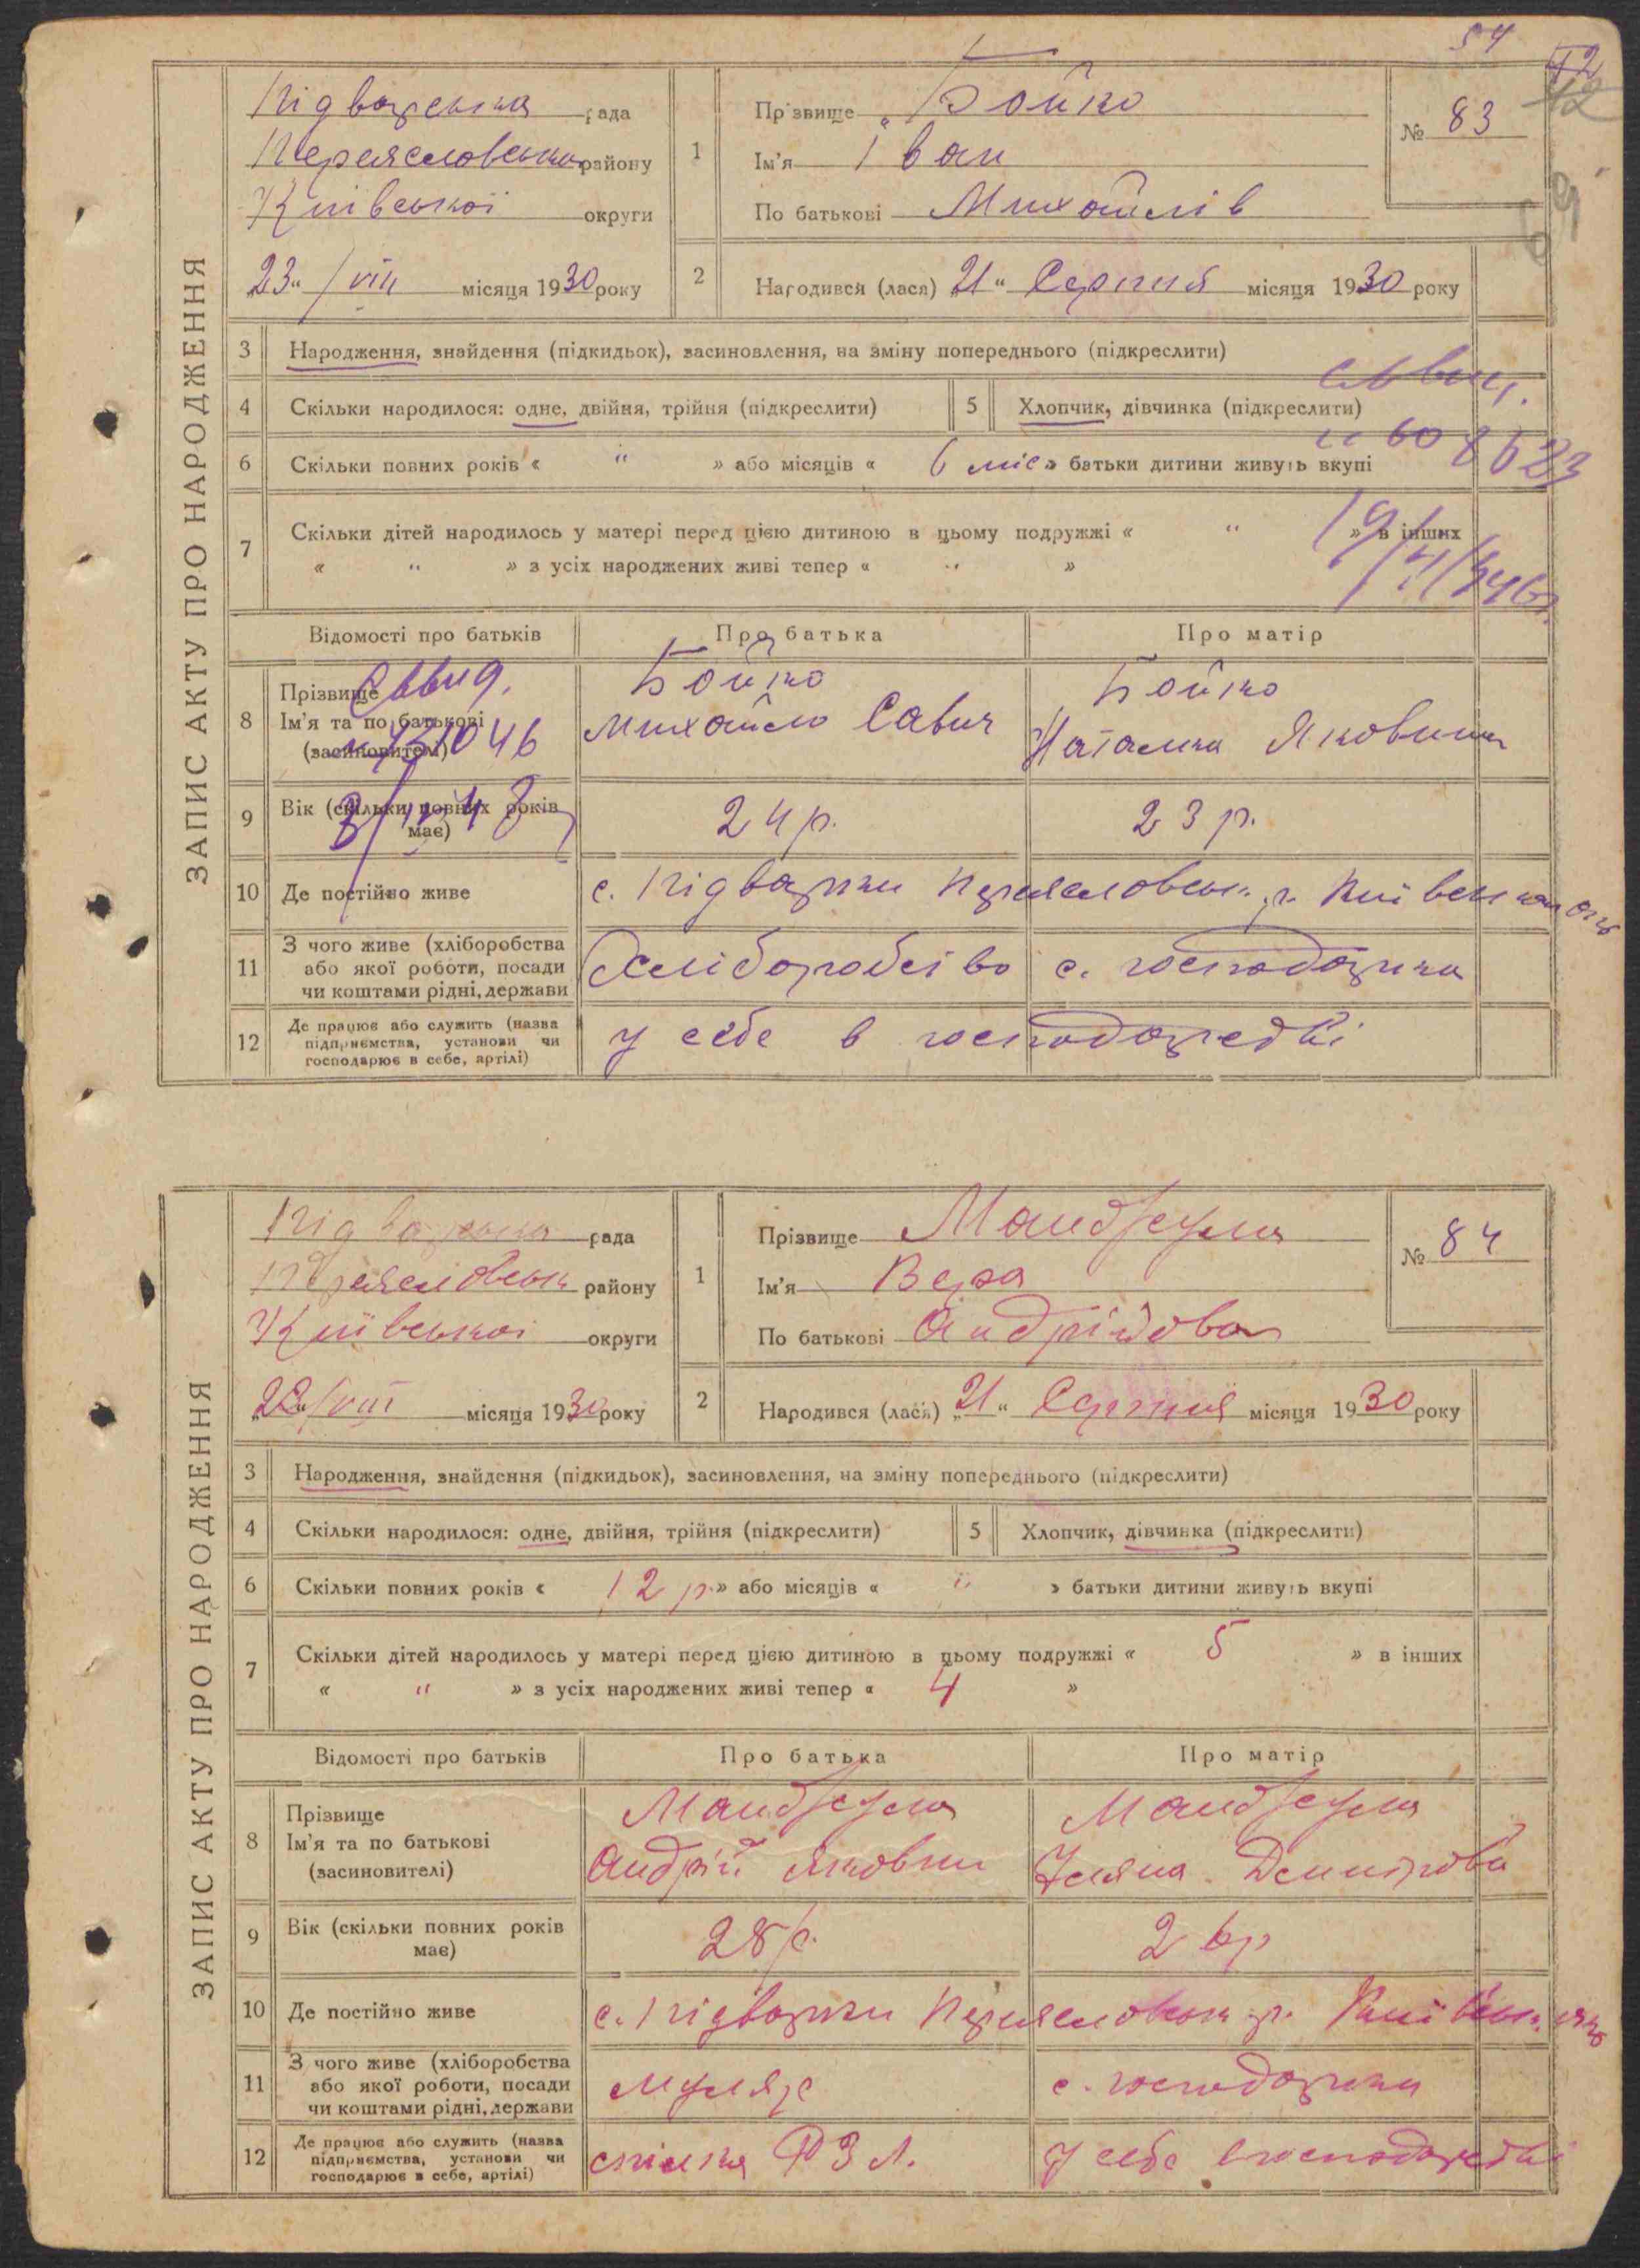 54
42
12
ЗАПИС АКТУ ПРО НАРОДЖЕННЯ
Підварська рада
Переяславськ району
Київської округи
„23“ /VIII місяця 1930 року
1 Прізвище Бойко
Ім'я Іван
По батькові Михайлів
№ 83
2 Народився (лася) „21“ Серпня місяця 1930 року
3 Народження, знайдення (підкидьок), засиновлення, на зміну попереднього (підкреслити)
4 Скільки народилося: одне, двійня, трійня (підкреслити) 5 Хлопчик, дівчинка (підкреслити)
6 Скільки повних років « " » або місяців « 6 міс » батьки дитини живуть вкупі
7 Скільки дітей народилось у матері перед цією дитиною в цьому подружжі « " » в інших
« " » з усіх народжених живі тепер « " »
Відомості про батьків Про батька Про матір
8 Прізвище Бойко Бойко
Ім'я та по батькові Михайло Савич Наталка Яковина
(засиновителі)
9 Вік (скільки повних років має) 24 р. 23 р.
10 Де постійно живе с. Підварки Переяславськ. р. Київської окр
11 З чого живе (хліборобства
або якої роботи, посади Хліборобство с. господарка
чи коштами рідні, держави
12 Де працює або служить (назва
підприємства, установи чи у себе в господарстві
господарює в себе, артілі)
ЗАПИС АКТУ ПРО НАРОДЖЕННЯ
Підварська рада
Переяславськ району
Київської округи
„22“/VIII місяця 1930 року
1 Прізвище Мандзуля
Ім'я Вера
По батькові Андрійова
№ 84
2 Народився (лася) „21“ Серпня місяця 1930 року
3 Народження, знайдення (підкидьок), засиновлення, на зміну попереднього (підкреслити)
4 Скільки народилося: одне, двійня, трійня (підкреслити) 5 Хлопчик, дівчинка (підкреслити)
6 Скільки повних років « 12 р. » або місяців « " » батьки дитини живуть вкупі
7 Скільки дітей народилось у матері перед цією дитиною в цьому подружжі « 5 » в інших
« " » з усіх народжених живі тепер « 4 »
Відомості про батьків Про батька Про матір
8 Прізвище Мандзуля Мандзуля
Ім'я та по батькові Андрій Якович Уляна Демидова
(засиновителі)
9 Вік (скільки повних років має) 28 р. 26 р
10 Де постійно живе с. Підварки Переяславськ р. Київськ. окр
11 З чого живе (хліборобства
або якої роботи, посади муляр с. господарка
чи коштами рідні, держави
12 Де працює або служить (назва
підприємства, установи чи спілка РЗЛ. у себе в господарстві
господарює в себе, артілі)